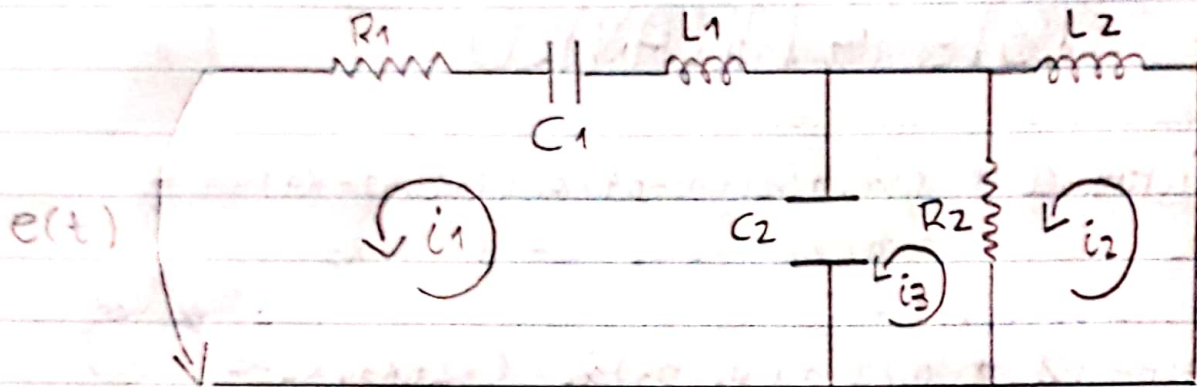 R1
L1
L2
C1
e(t)
i1
C2
R2
i2
i3